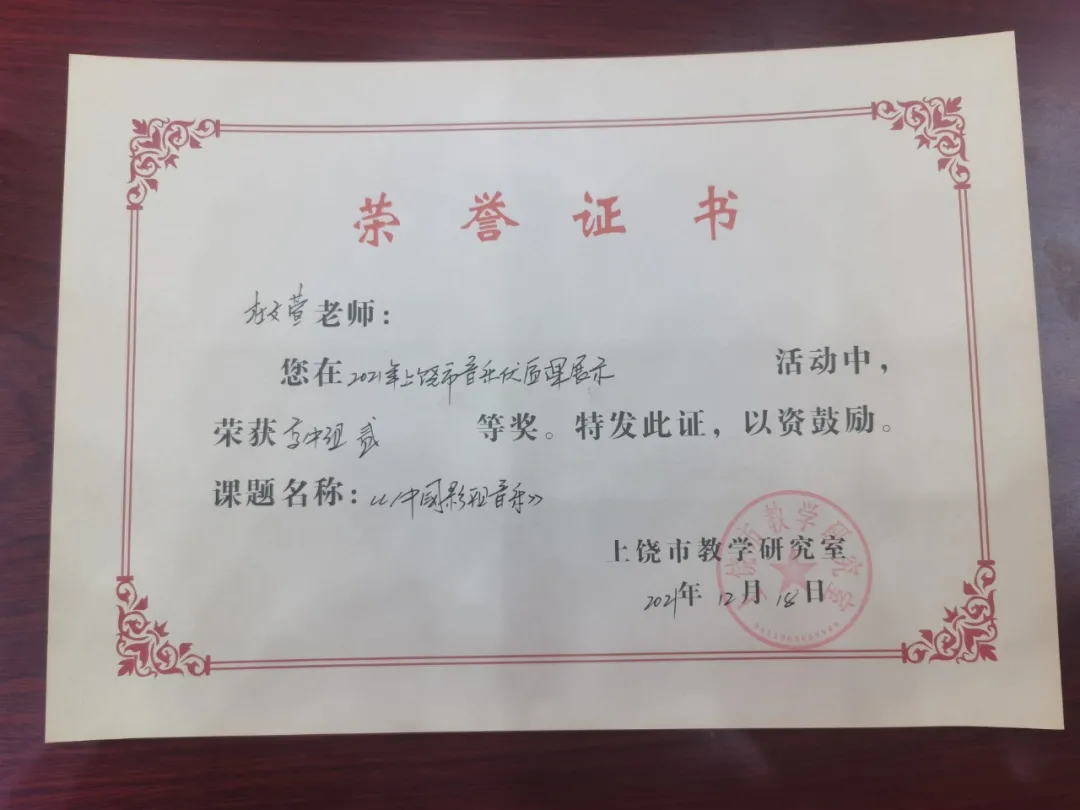 荣誉证书
老师：
您在2021年上饶市音乐优质课展示活动中，
荣获高中组贰等奖。特发此证，以资鼓励。
课题名称：《中国影视音乐》
上饶市教学研究室
2021年12月18日
上饶市教学研究室